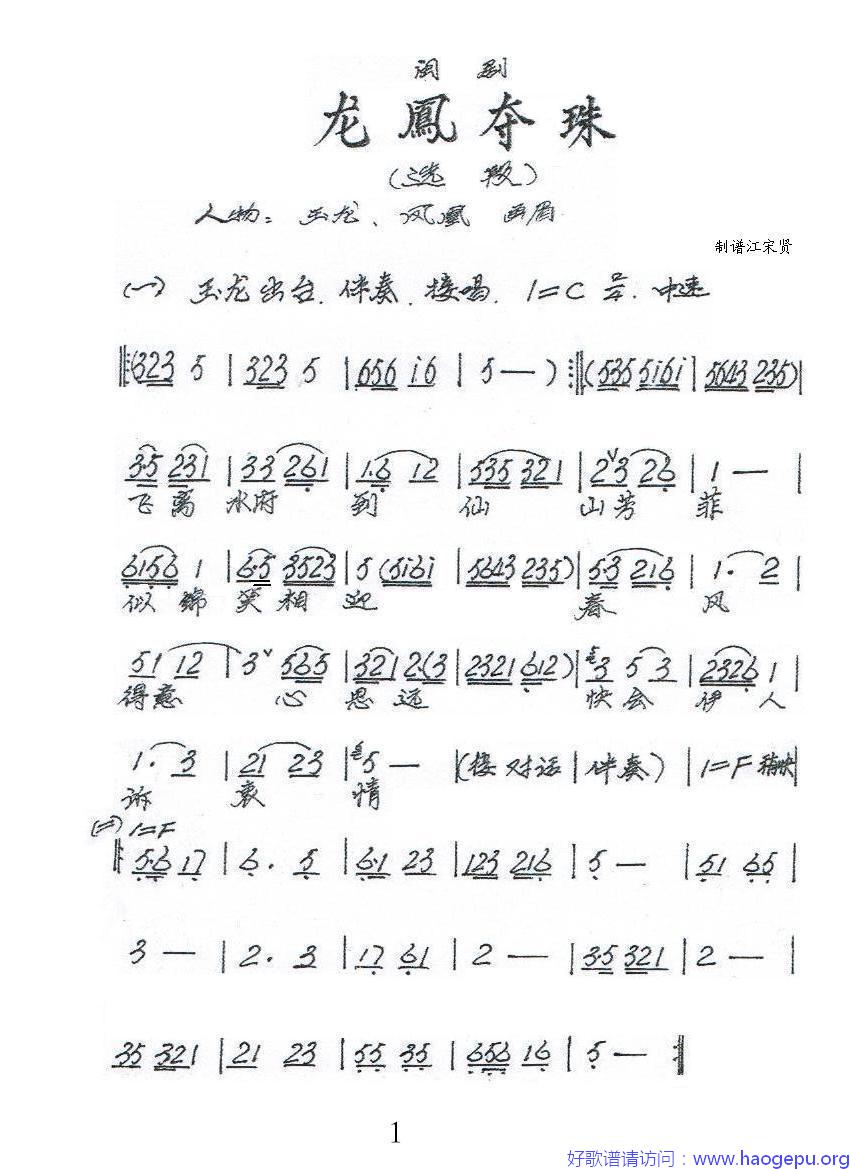 闽剧
龙鳳夺珠
(选段)
人物：玉龙、凤凰 画眉
制谱江宋贤
(一) 玉龙出台、伴奏、接唱、1=C 2/4. 中速
‖:(323 5 | 323 5 | 656 i6 | 5 — ) :‖ (535 5i6i | 5643 235) |
3·5 231 | 33 261 | 1·6 12 | 535 321 | 2ˇ3 26 | 1 — |
飞离 水府 到 仙 山芳 菲
6156 1 | 6·5 3523 | 5 (5i6i | 5643 235) | 5·3 216 | 1· 2 |
似锦 笑相 迎 春 风
51 12 | 3ˇ 565 | 321 2·(3 | 2321 612) | 3 5 3 | 2326 1 |
得意 心 思 远 快会 伊人
1· 3 | 21 23 | 5 — (接对话 | 伴奏) | 1=F 稍快 |
诉 衷 情
(二) 1=F
‖: 5·6 17 | 6· 5 | 6·1 23 | 123 216 | 5 — | 51 65 |
3 — | 2· 3 | 17 61 | 2 — | 3·5 321 | 2 — |
35 321 | 21 23 | 55 35 | 656 16 | 5 — :‖
1
好歌谱请访问：www.haogepu.org